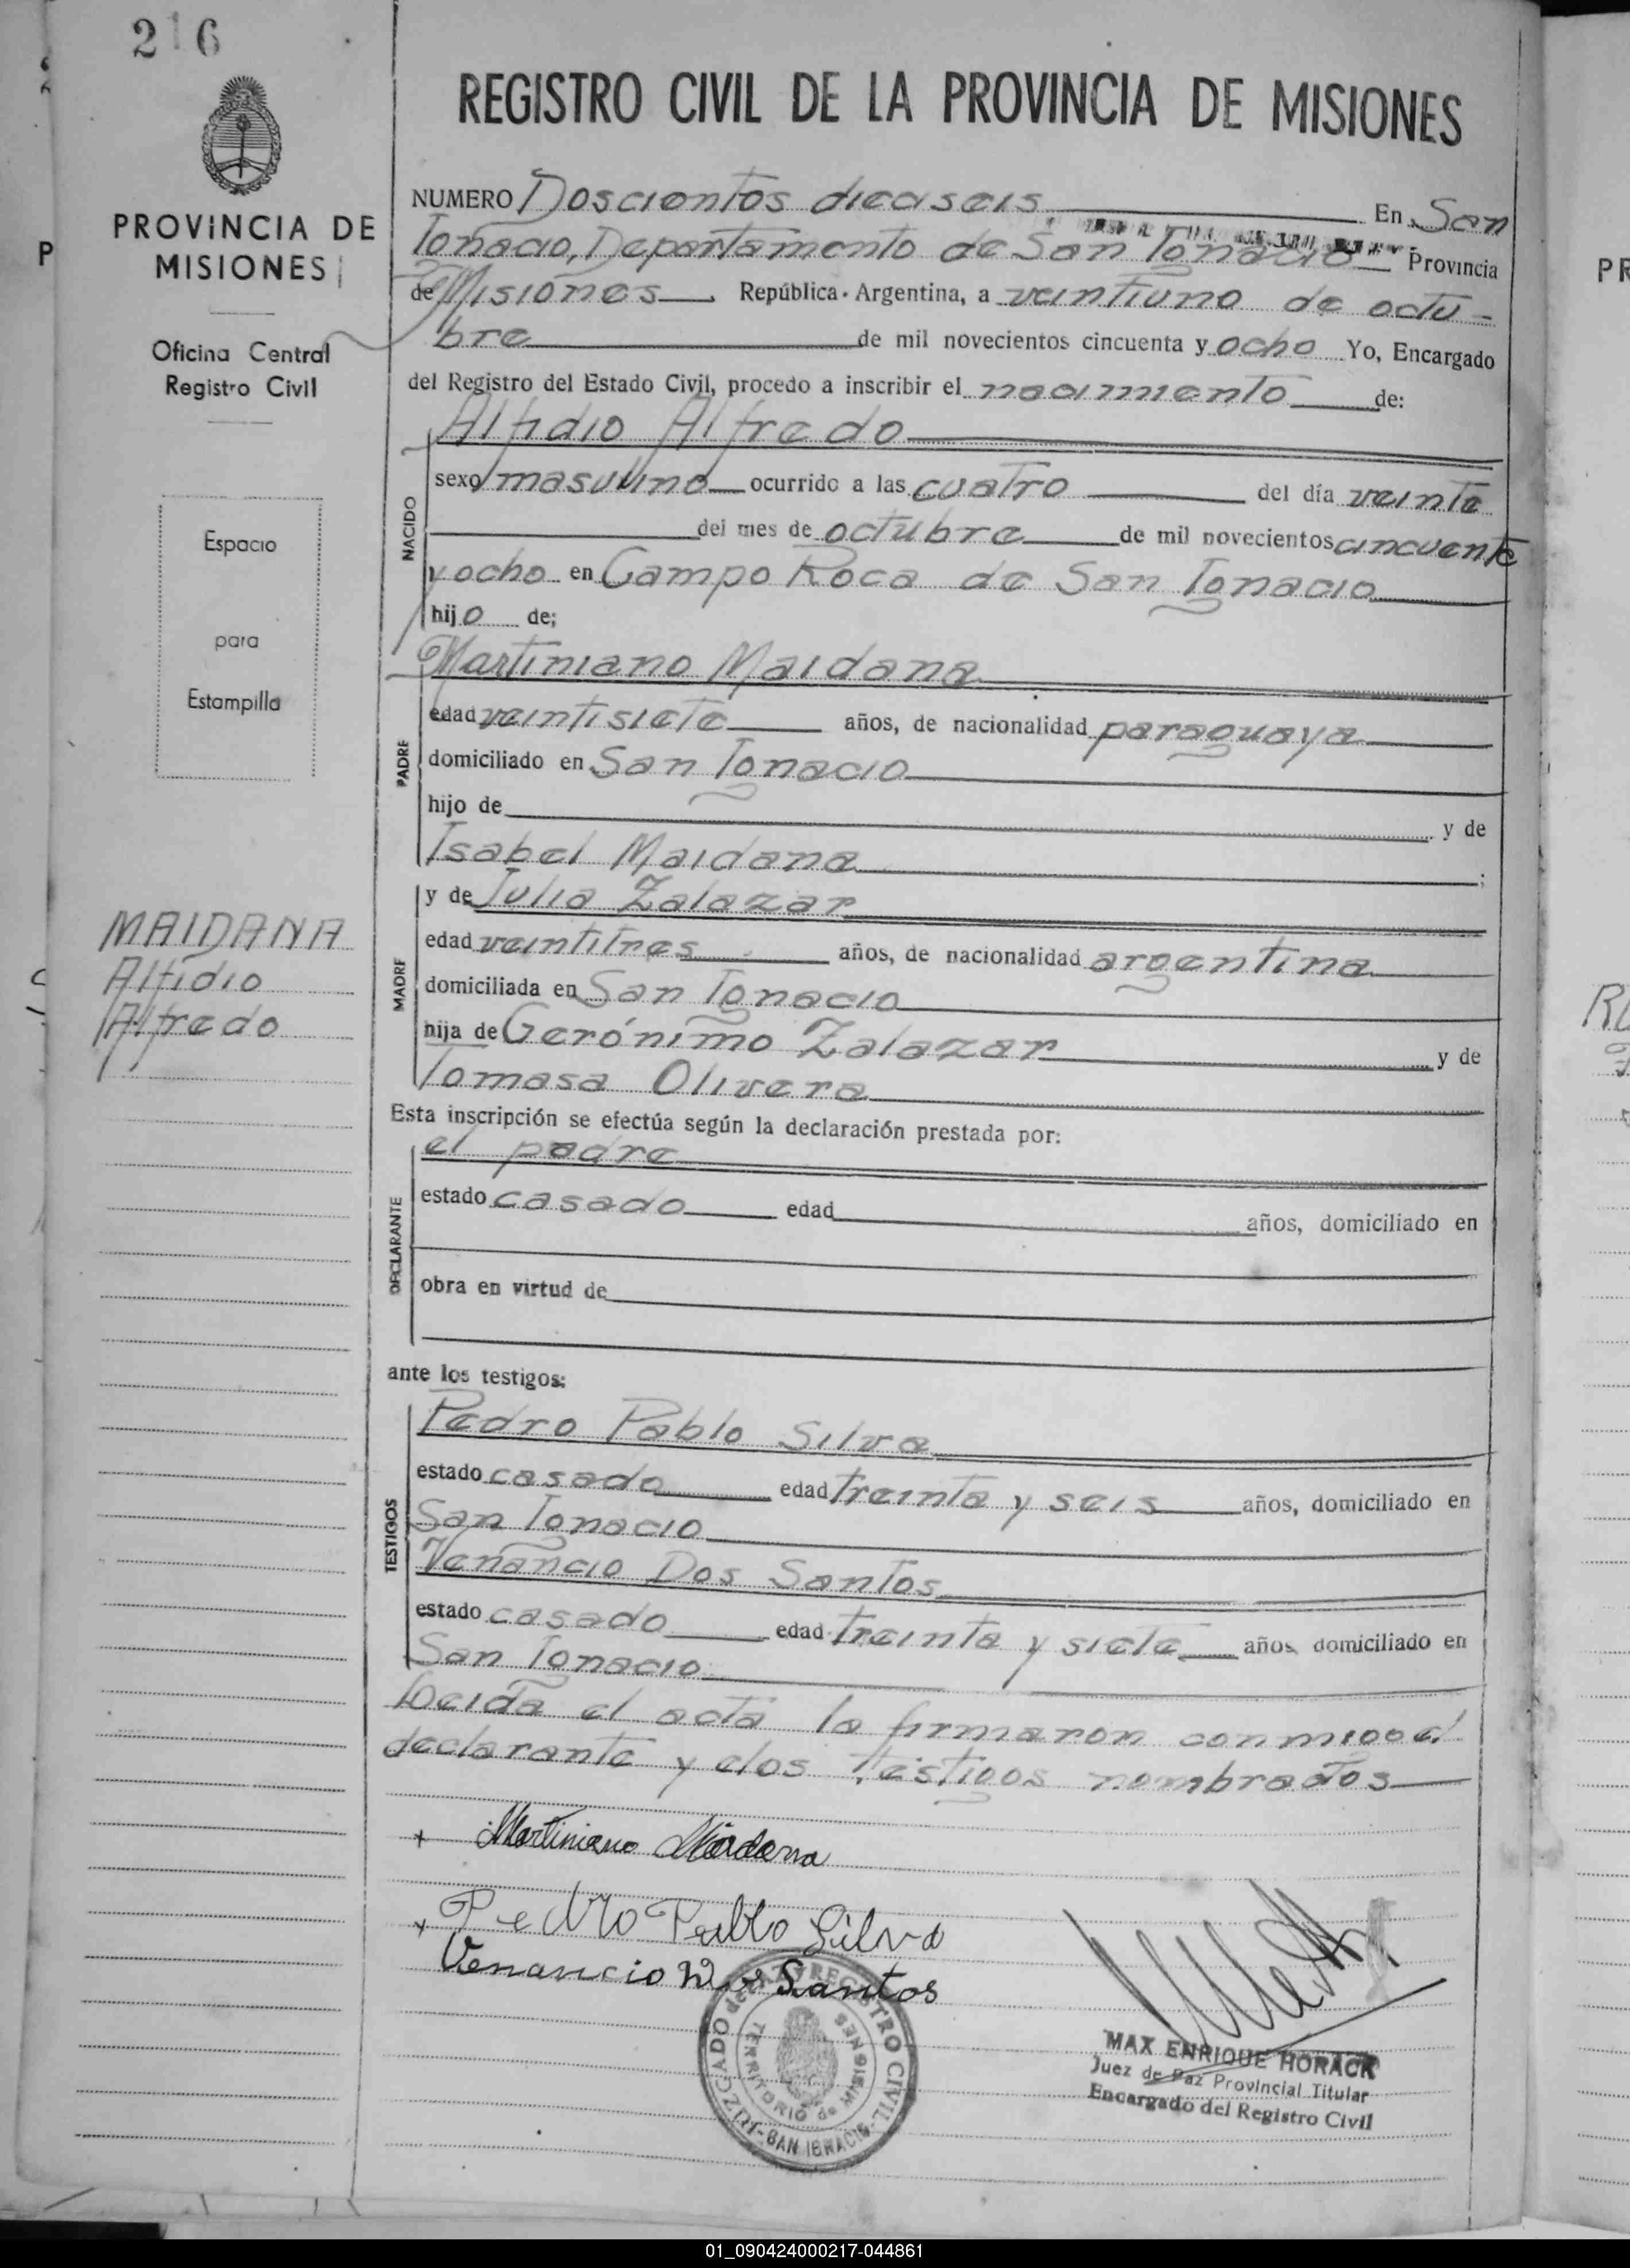 216
PROVINCIA DE
MISIONES
Oficina Central
Registro Civil
Espacio
para
Estampilla
MAIDANA
Alfidio
Alfredo
REGISTRO CIVIL DE LA PROVINCIA DE MISIONES
NUMERO Doscientos dieciseis En San
Ignacio, Departamento de San Ignacio Provincia
de Misiones República Argentina, a veintiuno de octu-
bre de mil novecientos cincuenta y ocho Yo, Encargado
del Registro del Estado Civil, procedo a inscribir el nacimiento de:
Alfidio Alfredo
NACIDO
sexo masculino ocurrido a las cuatro del día veinte
del mes de octubre de mil novecientos cincuenta
y ocho en Campo Roca de San Ignacio
hijo de;
Martiniano Maidana
PADRE
edad veintisiete años, de nacionalidad paraguaya
domiciliado en San Ignacio
hijo de y de
Isabel Maidana ;
y de Julia Zalazar
MADRE
edad veintitres años, de nacionalidad argentina
domiciliada en San Ignacio
hija de Gerónimo Zalazar y de
Tomasa Olivera
Esta inscripción se efectúa según la declaración prestada por:
el padre
DECLARANTE
estado casado edad años, domiciliado en
obra en virtud de
ante los testigos:
Pedro Pablo Silva
TESTIGOS
estado casado edad treinta y seis años, domiciliado en
San Ignacio
Venancio Dos Santos
estado casado edad treinta y siete años domiciliado en
San Ignacio
Leida el acta la firmaron conmigo el
declarante y los testigos nombrados
+ Martiniano Maidana
+ Pedro Pablo Silva
Venancio Dos Santos
JUZGADO de PAZ y REGISTRO CIVIL
TERRITORIO de MISIONES
SAN IGNACIO
MAX ENRIQUE HORACK
Juez de Paz Provincial Titular
Encargado del Registro Civil
01_090424000217-044861